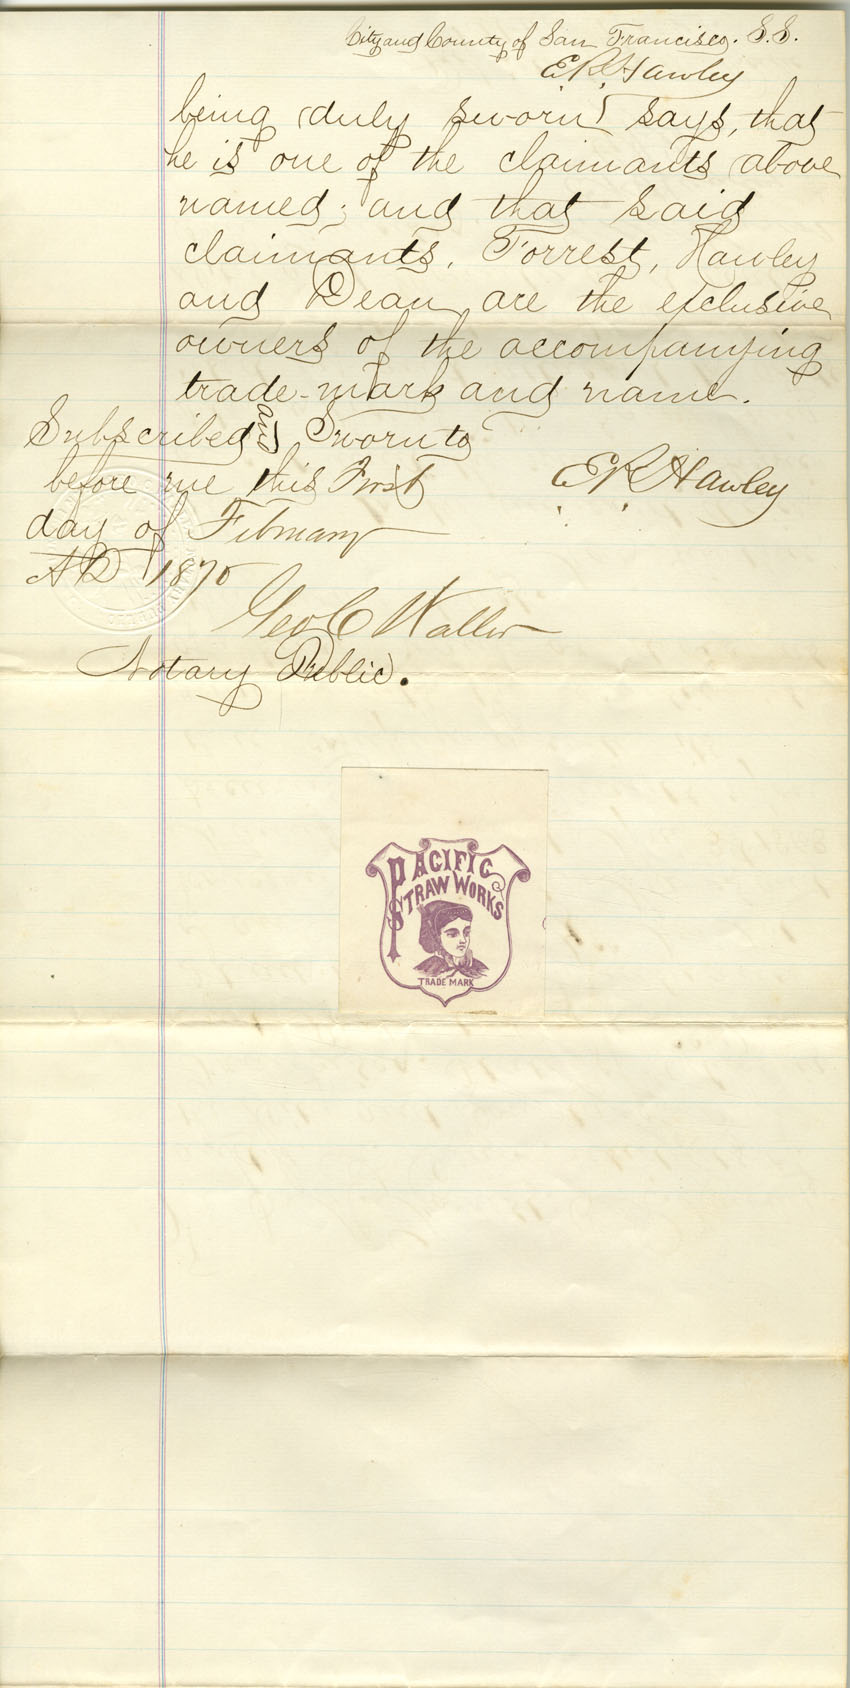 City and County of San Francisco. S.S.
E.R. Hawley
being duly sworn says, that
he is one of the claimants above
named; and that said
claimants, Forrest, Hawley
and Dean are the exclusive
owners of the accompanying
trade-mark and name.
Subscribed and Sworn to
before me this First
day of February
AD 1870
E R Hawley
Geo C Waller
Notary Public.
PACIFIC
STRAW WORKS
TRADE MARK